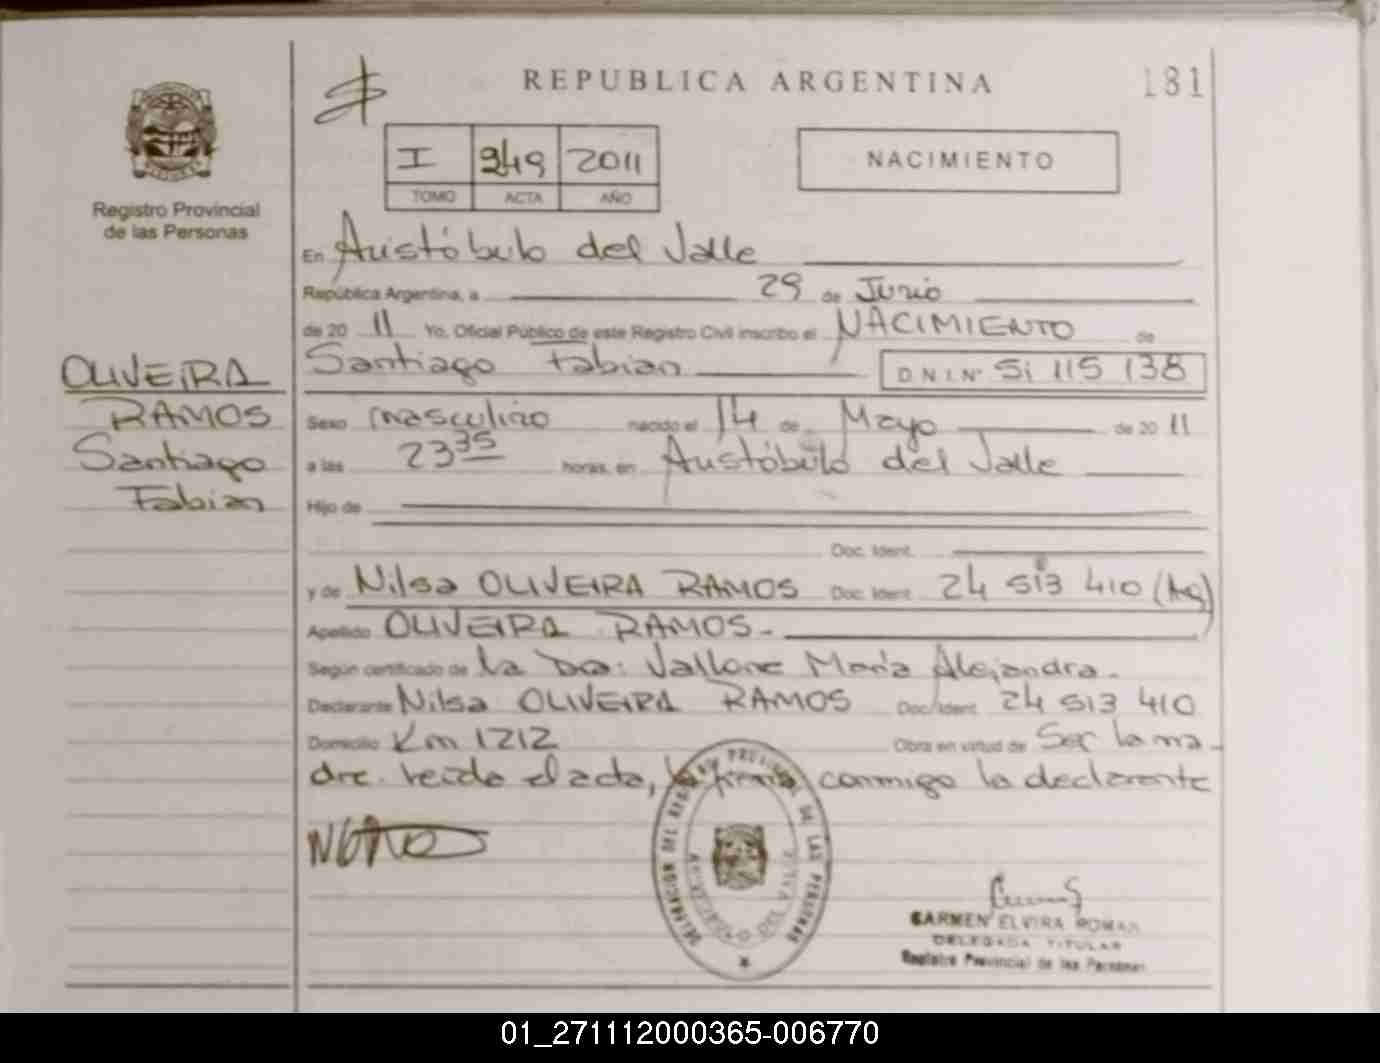 REPUBLICA ARGENTINA
181
I 249 2011
TOMO ACTA AÑO
NACIMIENTO
Registro Provincial
de las Personas
OLIVEIRA
RAMOS
Santiago
Fabian
En Aristóbulo del Valle
República Argentina, a 29 de Junio
de 20 11 Yo, Oficial Público de este Registro Civil inscribo el NACIMIENTO de
Santiago Fabian D.N.I.Nº 51 115 138
Sexo masculino nacido el 14 de Mayo de 20 11
a las 23 35 horas, en Aristóbulo del Valle
Hijo de
Doc. Ident.
y de Nilsa OLIVEIRA RAMOS Doc. Ident. 24 513 410 (Ag)
Apellido OLIVEIRA RAMOS-
Según certificado de la Dra: Vallone María Alejandra.
Declarante Nilsa OLIVEIRA RAMOS Doc. Ident. 24 513 410
Domicilio Km 1212 Obra en virtud de Ser la ma-
dre. leida el acta, la firma conmigo la declarante
DELEGACION DEL REGISTRO PROVINCIAL DE LAS PERSONAS
ARISTOBULO DEL VALLE
CARMEN ELVIRA ROMAN
DELEGADA TITULAR
Registro Provincial de las Personas
01_271112000365-006770